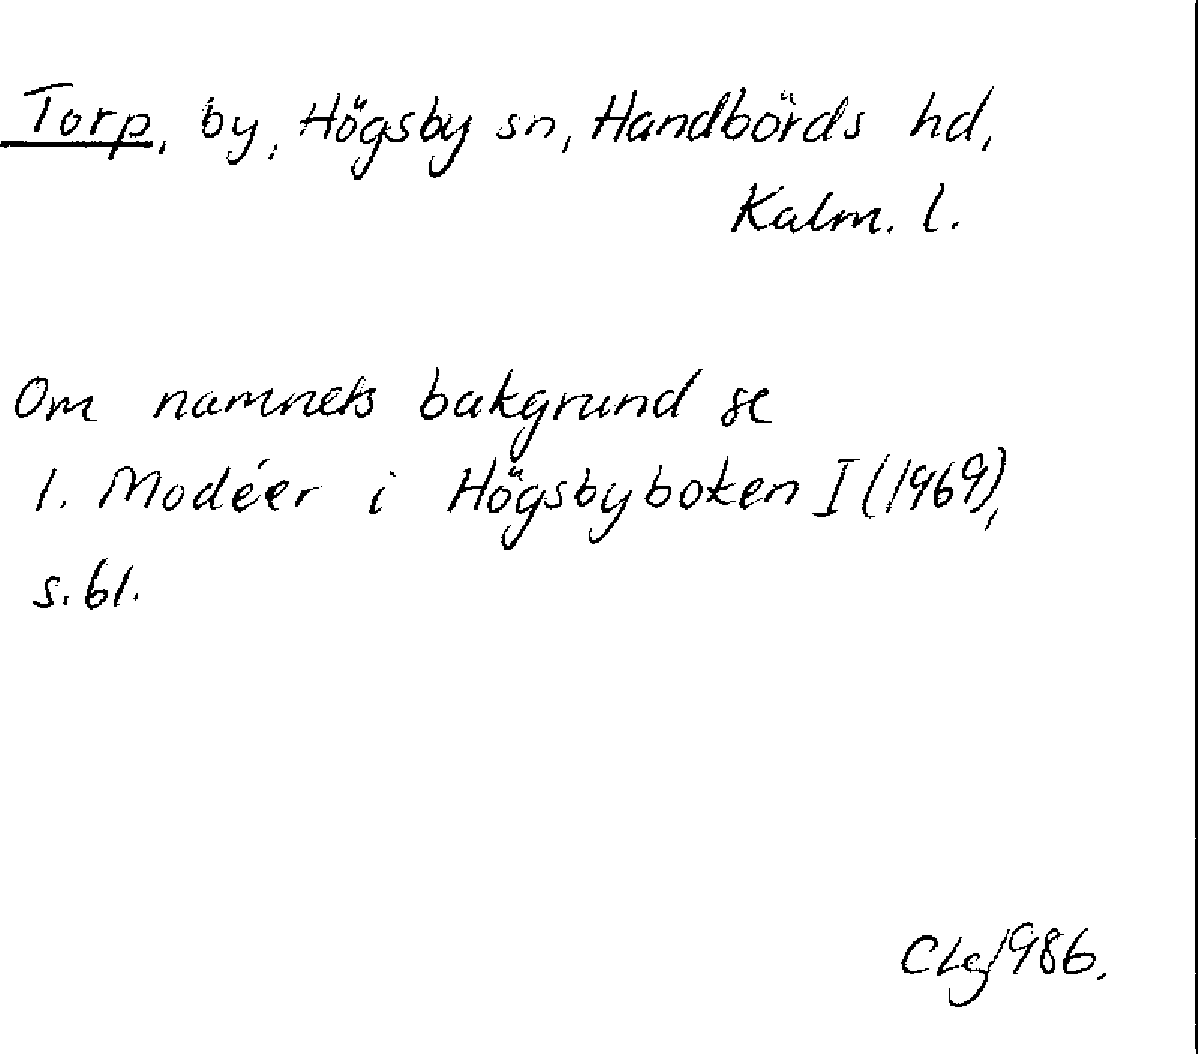 Torp, by, Högsby sn, Handbörds hd,
Kalm. l.
Om namnets bakgrund se
I. Modéer i Högsbyboken I (1969),
s. 61.
CLg 1986.